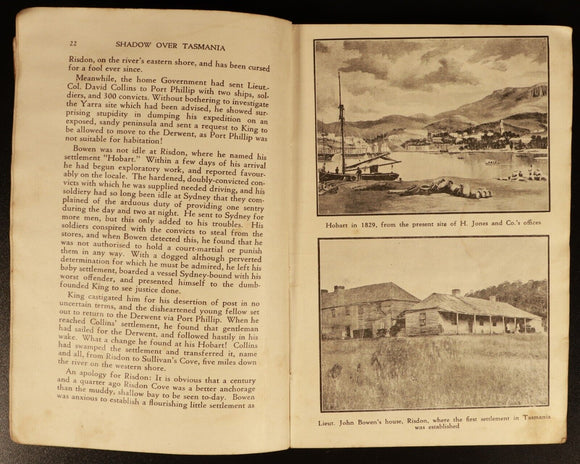 22 SHADOW OVER TASMANIA
Risdon, on the river's eastern shore, and has been cursed
for a fool ever since.
Meanwhile, the home Government had sent Lieut.-
Col. David Collins to Port Phillip with two ships, sol-
diers, and 300 convicts. Without bothering to investigate
the Yarra site which had been advised, he showed sur-
prising stupidity in dumping his expedition on an
exposed, sandy peninsula and sent a request to King to
be allowed to move to the Derwent, as Port Phillip was
not suitable for habitation!
Bowen was not idle at Risdon, where he named his
settlement "Hobart." Within a few days of his arrival
he had begun exploratory work, and reported favour-
ably on the locale. The hardened, doubly-convicted con-
victs with which he was supplied needed driving, and his
soldiery had so long been idle at Sydney that they com-
plained of the arduous duty of providing one sentry
during the day and two at night. He sent to Sydney for
more men, but this only added to his troubles. His
soldiers conspired with the convicts to steal from the
stores, and when Bowen detected this, he found that he
was not authorised to hold a court-martial or punish
them in any way. With a dogged although perverted
determination for which he must be admired, he left his
baby settlement, boarded a vessel Sydney-bound with his
worst offender, and presented himself to the dumb-
founded King to see justice done.
King castigated him for his desertion of post in no
uncertain terms, and the disheartened young fellow set
out to return to the Derwent via Port Phillip. When he
reached Collins' settlement, he found that gentleman
had sailed for the Derwent, and followed hastily in his
wake. What a change he found at his Hobart! Collins
had swamped the settlement and transferred it, name
and all, from Risdon to Sullivan's Cove, five miles down
the river on the western shore.
An apology for Risdon: It is obvious that a century
and a quarter ago Risdon Cove was a better anchorage
than the muddy, shallow bay to be seen to-day. Bowen
was anxious to establish a flourishing little settlement as
Hobart in 1829, from the present site of H. Jones and Co.'s offices
Lieut. John Bowen's house, Risdon, where the first settlement in Tasmania
was established